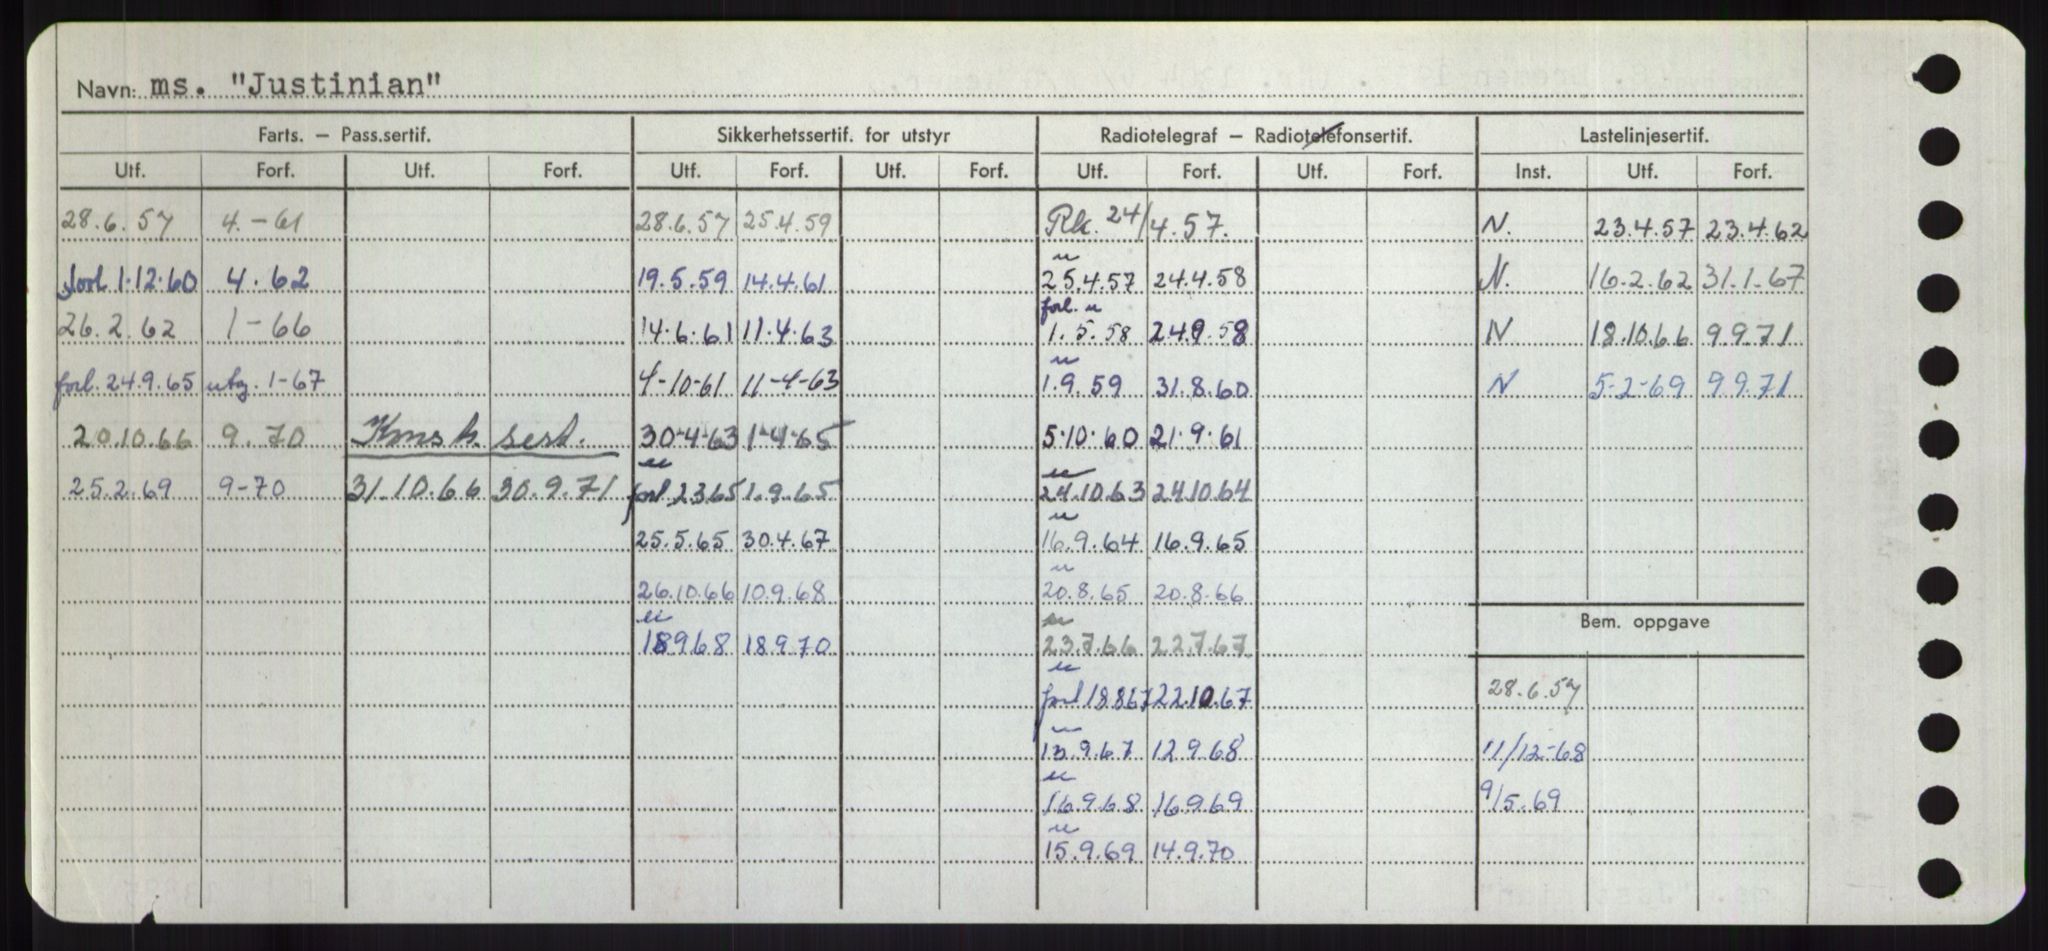 Navn: ms. "Justinian"
Farts. — Pass.sertif. Sikkerhetssertif. for utstyr Radiotelegraf — Radiotelefonsertif. Lastelinjesertif.
Utf. Forf. Utf. Forf. Utf. Forf. Utf. Forf. Utf. Forf. Utf. Forf. Inst. Utf. Forf.
28.6.57 4.-61 28.6.57 25.4.59 Rk. 24/4.57. N. 23.4.57 23.4.62
u
forl 1.12.60 4.62 19.5.59 14.4.61 25.4.57 24.4.58 N. 16.2.62 31.1.67
forl. u
26.2.62 1-66 14.6.61 11.4.63 1.5.58 24.9.58 N 18.10.66 9.9.71
u
forl. 24.9.65 utg. 1-67 4-10-61 11-4-63 1.9.59 31.8.60 N 5-2-69 9.9.71
20.10.66 9.70 sert. 30-4-63 1-4-65 5.10.60 21.9.61
u u
25.2.69 9-70 31.10.66 30.9.71 forl 2.3.65 1.9.65 24.10.63 24.10.64
u
25.5.65 30.4.67 16.9.64 16.9.65
u
26.10.66 10.9.68 20.8.65 20.8.66
u u Bem. oppgave
18968 18970 23.7.66 22.7.67
u
forl 18867 22.10.67 28.6.57
u
13.9.67 12.9.68 11/12-68
u
16.9.68 16.9.69 9/5.69
u
15.9.69 14.9.70